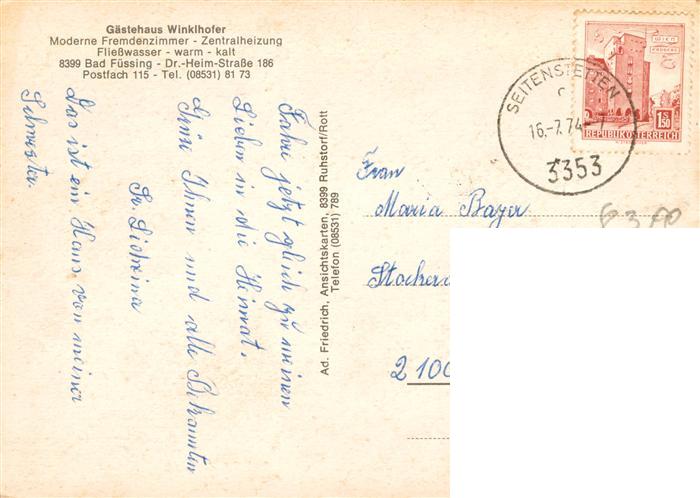 Gästehaus Winklhofer
Moderne Fremdenzimmer - Zentralheizung
Fließwasser - warm - kalt
8399 Bad Füssing - Dr.-Heim-Straße 186
Postfach 115 - Tel. (08531) 81 73
Fahre jetzt gleich zu meinen
Lieben in die Heimat.
Grüße Ihnen und alle Bekannten
Sr. Lidwina
Das ist ein Haus von meiner
Schwester.
Ad. Friedrich, Ansichtskarten, 8399 Ruhstorf/Rott
Telefon (08531) 789
SEITENSTETTEN
16.-7.74
3353
WIEN
1.50
REPUBLIK ÖSTERREICH
Frau
Maria Bayer
Stockera
2100